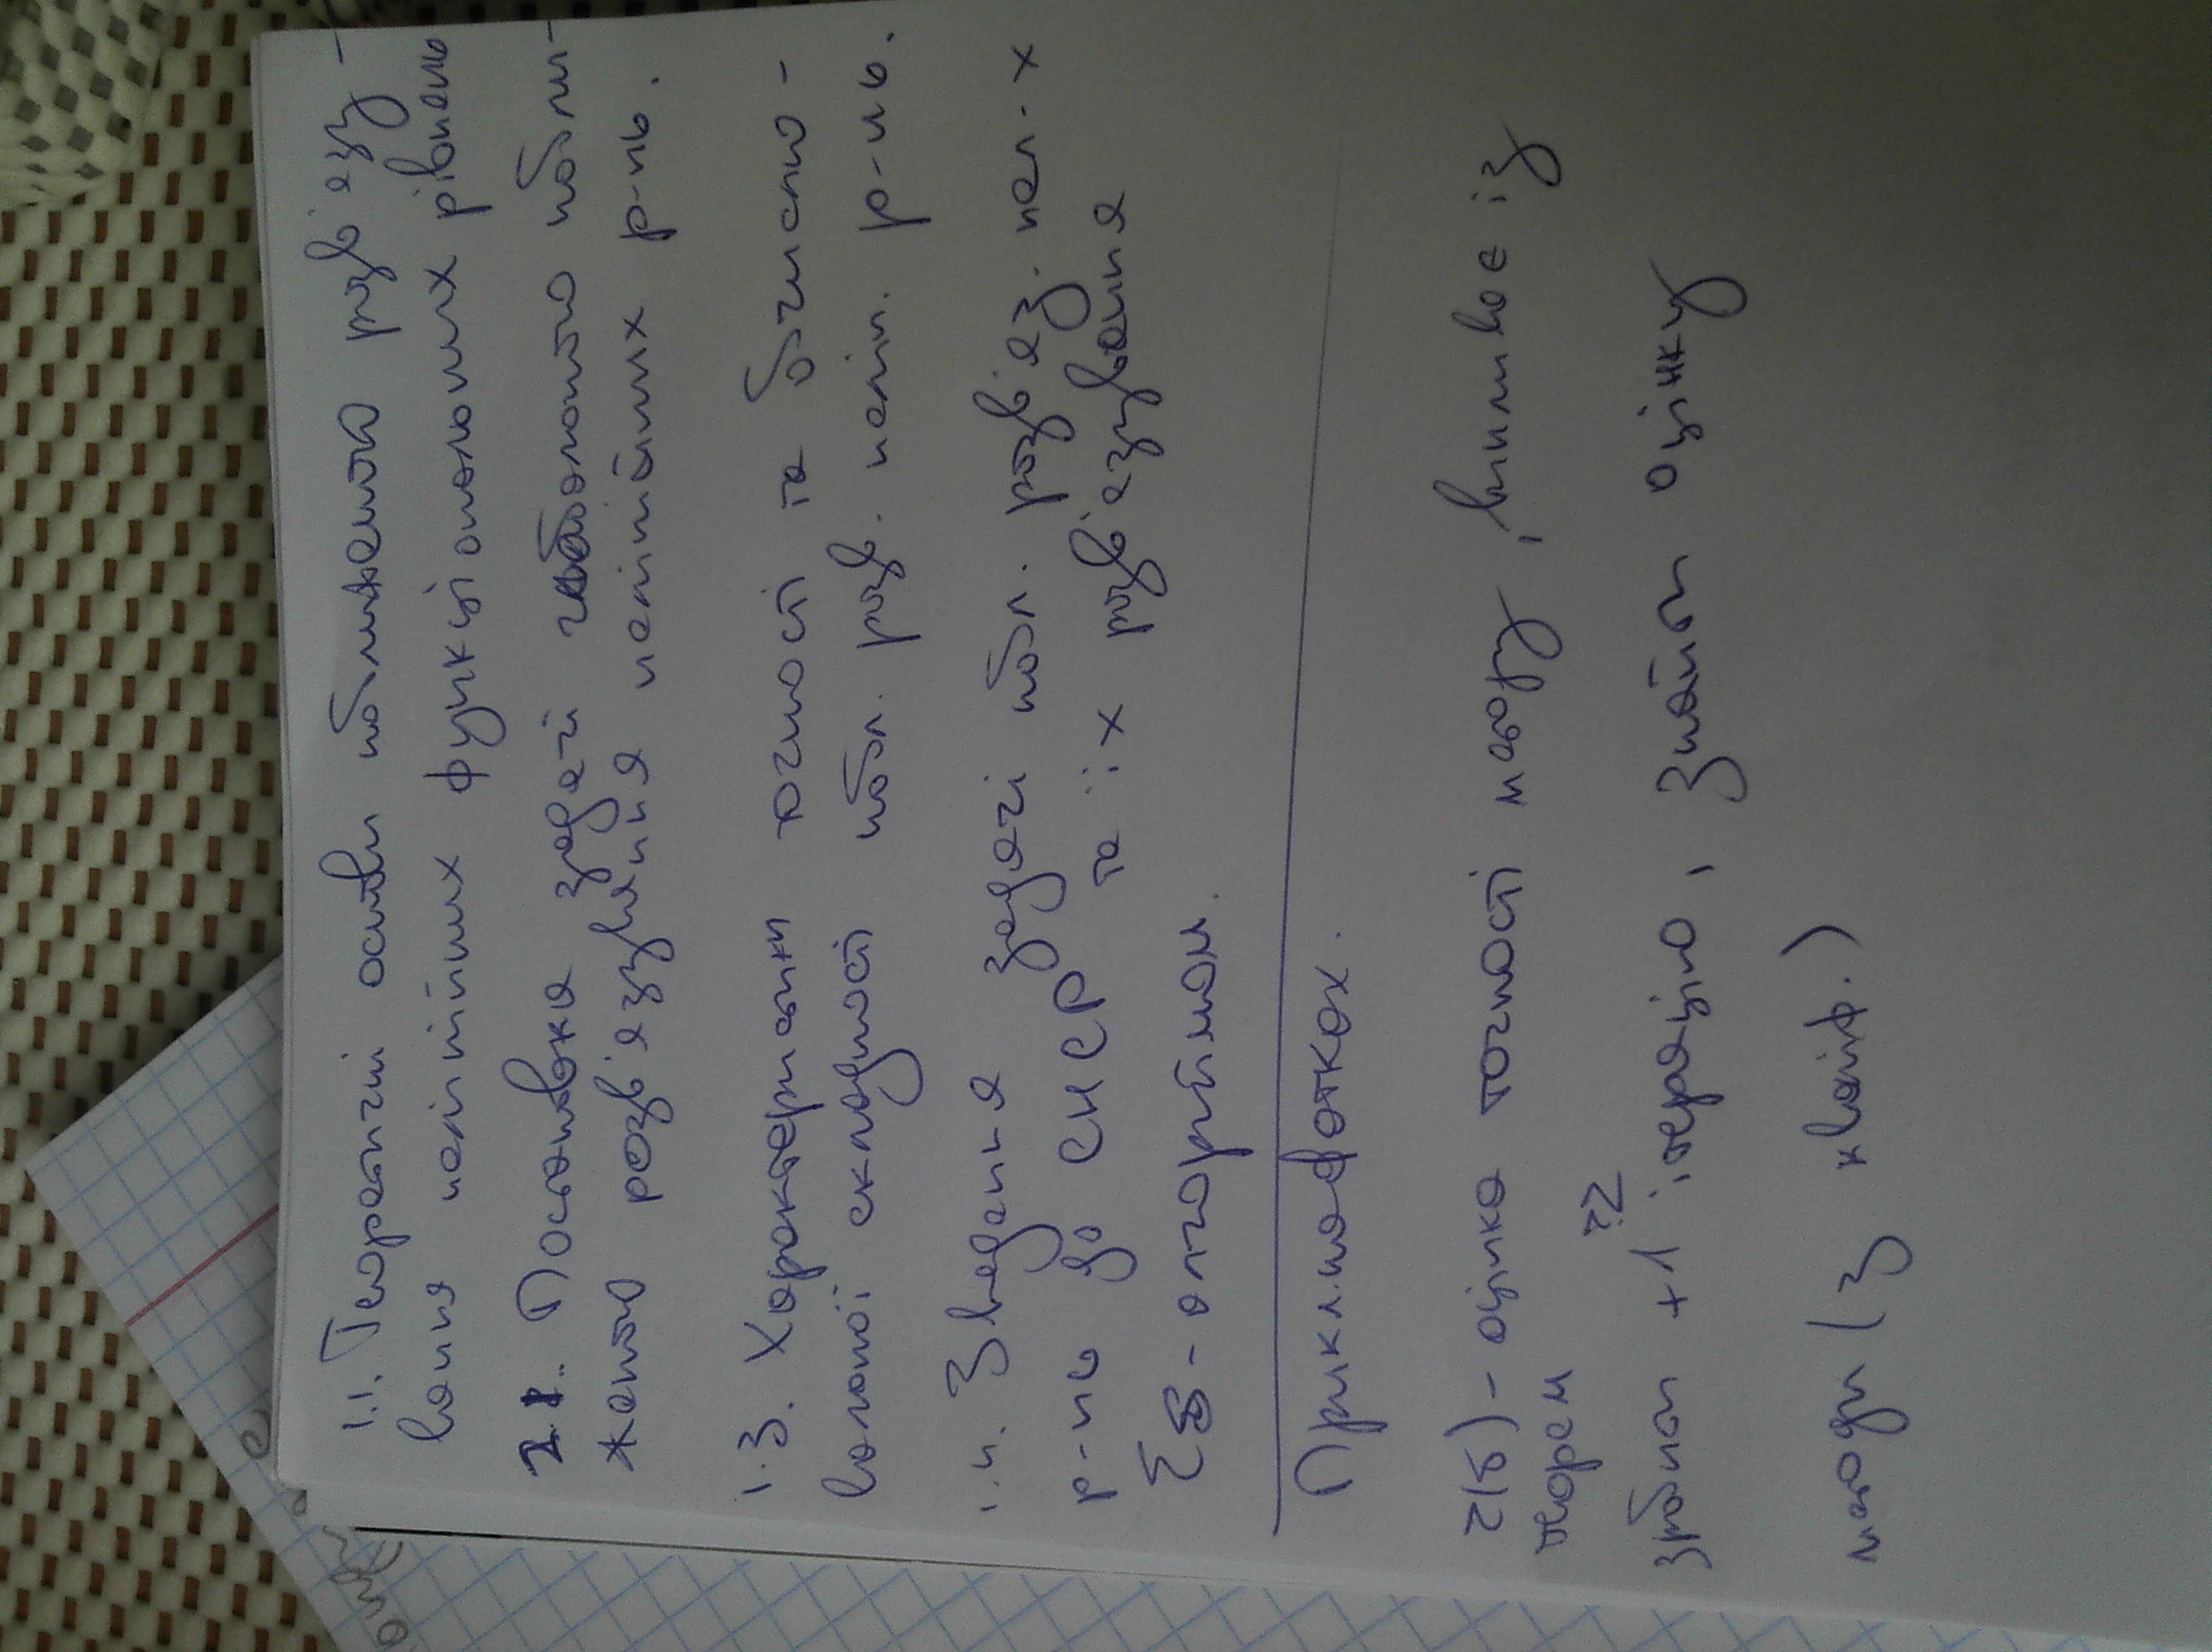 1.1. Теоретичні основи наближеного розв'язу-
вання нелінійних функціональних рівнянь
2.1. Постановка задачі глобального набли-
женого розв'язування нелінійних р-нь.
1.3. Характеристики точності та обчислю-
вальної складності набл. розв. нелін. р-нь.
1.4. Зведення задачі набл. розв'яз. нел-х
р-нь до СНСР та їх розв'язування
алгоритмом.
Прикл. на фотках.
оцінка точності методу, випливає із
теорем
??
зробити +1 ітерацію, знайти оцінку
методи (з кваліф.)